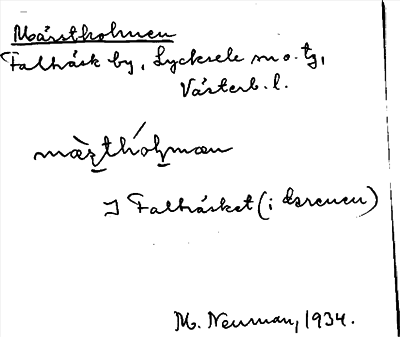 Mårstholmen
Falträsk by, Lycksele m o. tg,
Västerb. l.
mæ̀ʀ̱thóḻmæn
I Falträsket (i
M. Neuman, 1934.